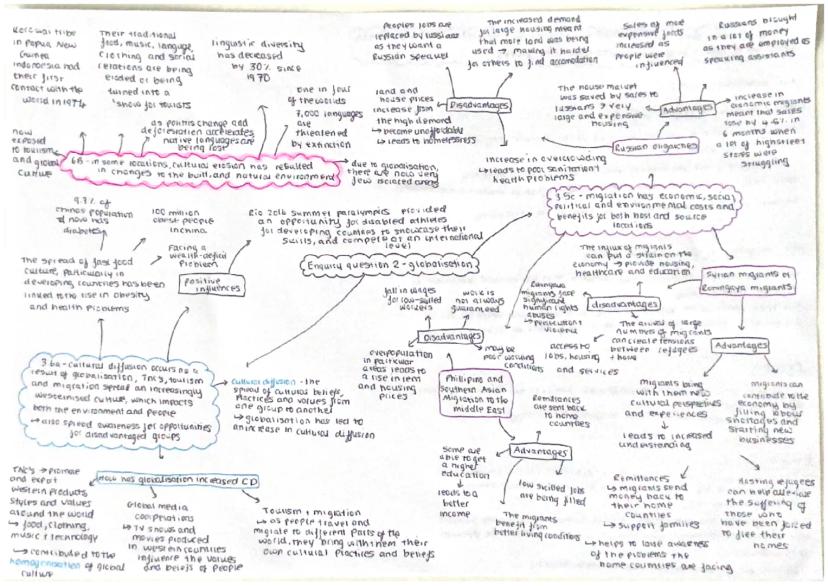 Korowai tribe
in Papua New
Guinea
Indonesia had
their first
contact with the
world in 1974
now
exposed
to tourism
and global
culture
Their traditional
food, music, language,
clothing and social
relations are being
eroded or being
turned into a
'show for tourists
linguistic diversity
has decreased
by 30% since
1970
as politics change and
deforestation accelerates
native languages are
being lost
one in four
of the worlds
7,000 languages
are
threatened
by extinction
6B - in some locations, cultural erosion has resulted
in changes to the built and natural environment
due to globalisation,
there are now very
few isolated areas
Peoples jobs are
replaced by russians
as they want a
Russian speaker
The increased demand
for large housing meant
that more land was being
used → making it harder
for others to find accomodation
land and
house prices
increase from
the high demand
↳ become unaffordable
↳ leads to homelessness
Disadvantages
increase in overcrowding
↳ leads to poor sanitation +
health problems
Sales of more
expensive
increased as
people were
influenced
Russians bought
in a lot of money
as they are employed as
speaking assistants
The house market
was saved by sales to
russians → very
large and expensive
housing
Advantages
increase in
economic migrants
meant that sales
rose by 4.6% in
6 months when
a lot of highstreet
stores were
struggling
Russian oligarches
3.5c - migration has economic, social
political and environmental costs and
benefits for both host and source
locations
9.7% of
chinas population
now has
diabetes
100 million
obese people
in china
Facing a
wealth-deficit
problem
The spread of fast food
culture, particularly in
developing countries has been
linked to the rise in obesity
and health problems
Positive influences
Rio 2016 summer paralympics provided
an opportunity for disabled athletes
for developing countries to showcase their
skills, and compete at an international
level
Enquiry question 2 - globalisation
3.6a - cultural diffusion occurs as a
result of globalisation, TNC's, tourism
and migration spread an increasingly
westernised culture, which impacts
both the environment and people
↳ also spread awareness for opportunities
for disadvantaged groups
cultural diffusion - the
spread of cultural beliefs,
practices and values from
one group to another
↳ globalisation has led to
an increase in cultural diffusion
How has globalisation increased CD
TNC's → promote
and export
western products
styles and values
around the world
↳ food, clothing,
music + technology
↳ contributed to the
homogenisation of global
culture
Global media
cooperations
↳ TV shows and
movies produced
in western countries
influence the values
and beliefs of people
Tourism + migration
↳ as people travel and
migrate to different parts of the
world, they bring with them their
own cultural practices and beliefs
fall in wages
for low-skilled
workers
work is
not always
guaranteed
Disadvantages
overpopulation
in particular
areas leads to
a rise in rent
and housing
prices
may be
poor working
conditions
Phillipino and
Southern Asian
Migration to the
middle East
Remittances
are sent back
to home
countries
Advantages
Some are
able to get
a higher
education
leads to a
better
income
The migrants
benefit from
better living conditions
low skilled jobs
are being filled
The influx of migrants
can put a strain on the
economy → provide housing,
healthcare and education
Rohingya
migrants face
significant
human rights
abuses
↳ persecution +
violence
disadvantages
access to
jobs, housing
and services
The arrival of large
numbers of migrants
can create tensions
between refugees
+ home
Syrian migrants or
Rohingaya migrants
Advantages
migrants bring
with them new
cultural perspectives
and experiences
leads to increased
understanding
migrants can
contribute to the
economy by
filling labour
shortages and
starting new
businesses
Remittances
↳ migrants send
money back to
their home
countries
↳ support families
↳ helps to raise awareness
of the problems the
home countries are facing
Hosting refugees
can help alleviate
the suffering of
those who
have been forced
to flee their
homes